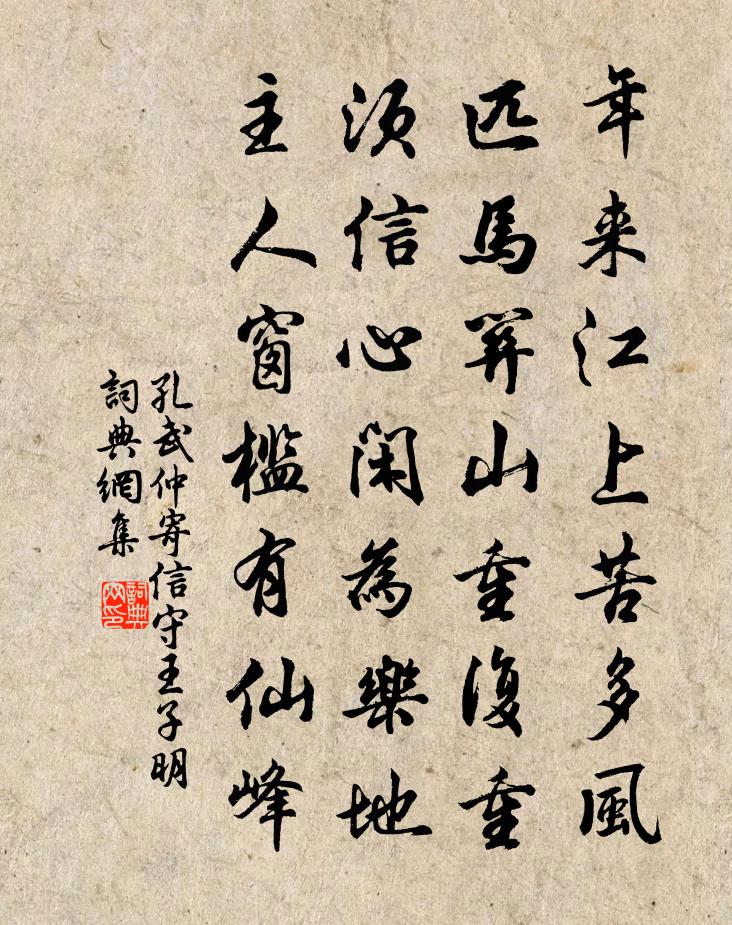 年来江上苦多風
匹馬関山重復重
須信心閑為樂地
主人窗檻有仙峰
孔武仲寄信守王子明
詞典網集
詞典網印